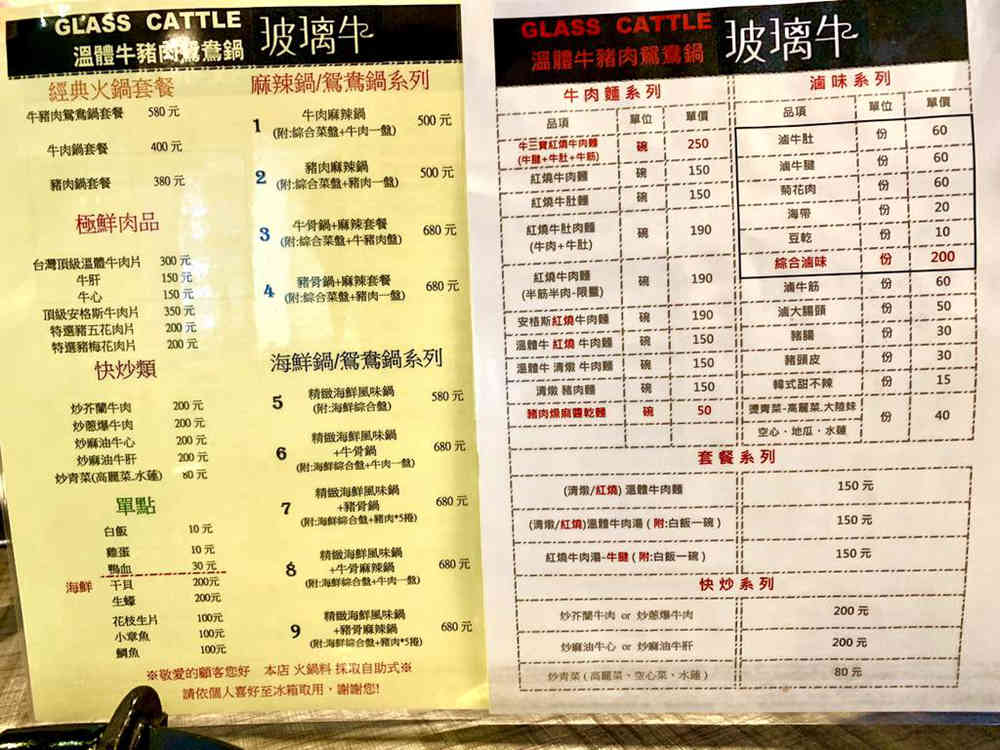 GLASS CATTLE
溫體牛豬肉鴛鴦鍋 玻璃牛
經典火鍋套餐
牛豬肉鴛鴦鍋套餐 580 元
牛肉鍋套餐 400 元
豬肉鍋套餐 380 元
極鮮肉品
台灣頂級溫體牛肉片 300 元
牛肝 150 元
牛心 150 元
頂級安格斯牛肉片 350 元
特選豬五花肉片 200 元
特選豬梅花肉片 200 元
快炒類
炒芥蘭牛肉 200 元
炒蔥爆牛肉 200 元
炒麻油牛心 200 元
炒麻油牛肝 200 元
炒青菜(高麗菜.水蓮) 80 元
單點
白飯 10 元
雞蛋 10 元
鴨血 30 元
海鮮 干貝 200元
生蠔 200元
花枝生片 100元
小章魚 100元
鯛魚 100元
麻辣鍋/鴛鴦鍋系列
1 牛肉麻辣鍋 500 元
(附:綜合菜盤+牛肉一盤)
2 豬肉麻辣鍋 500 元
(附:綜合菜盤+豬肉一盤)
3 牛骨鍋+麻辣套餐 680 元
(附:綜合菜盤+牛豬肉盤)
4 豬骨鍋+麻辣套餐 680 元
(附:綜合菜盤+豬肉一盤)
海鮮鍋/鴛鴦鍋系列
5 精緻海鮮風味鍋 580 元
(附:海鮮綜合盤)
6 精緻海鮮風味鍋 680 元
+牛骨鍋
(附:海鮮綜合盤+牛肉一盤)
7 精緻海鮮風味鍋 680 元
+豬骨鍋
(附:海鮮綜合盤+豬肉*5捲)
8 精緻海鮮風味鍋 680 元
+牛骨麻辣鍋
(附:海鮮綜合盤+牛肉一盤)
9 精緻海鮮風味鍋 680 元
+豬骨麻辣鍋
(附:海鮮綜合盤+豬肉*5捲)
※敬愛的顧客您好 本店 火鍋料 採取自助式※
請依個人喜好至冰箱取用，謝謝您!
GLASS CATTLE
溫體牛豬肉鴛鴦鍋 玻璃牛
牛肉麵系列
品項 單位 單價
牛三寶紅燒牛肉麵 碗 250
(牛腱+牛肚+牛筋)
紅燒牛肉麵 碗 150
紅燒牛肚麵 碗 150
紅燒牛肚肉麵 碗 190
(牛肉+牛肚)
紅燒牛肉麵 碗 190
(半筋半肉-限量)
安格斯紅燒牛肉麵 碗 190
溫體牛 紅燒 牛肉麵 碗 150
溫體牛 清燉 牛肉麵 碗 150
清燉 豬肉麵 碗 150
豬肉燥麻醬乾麵 碗 50
滷味系列
品項 單位 單價
滷牛肚 份 60
滷牛腱 份 60
菊花肉 份 60
海帶 份 20
豆乾 份 10
綜合滷味 份 200
滷牛筋 份 60
滷大腸頭 份 50
豬腸 份 30
豬頭皮 份 30
韓式甜不辣 份 15
燙青菜-高麗菜.大陸妹 份 40
空心、地瓜、水蓮
套餐系列
(清燉/紅燒) 溫體牛肉麵 150 元
(清燉/紅燒)溫體牛肉湯 ( 附:白飯一碗 ) 150 元
紅燒牛肉湯-牛腱 ( 附:白飯一碗 ) 150 元
快炒系列
炒芥蘭牛肉 or 炒蔥爆牛肉 200 元
炒麻油牛心 or 炒麻油牛肝 200 元
炒青菜 ( 高麗菜、空心菜、水蓮 ) 80 元